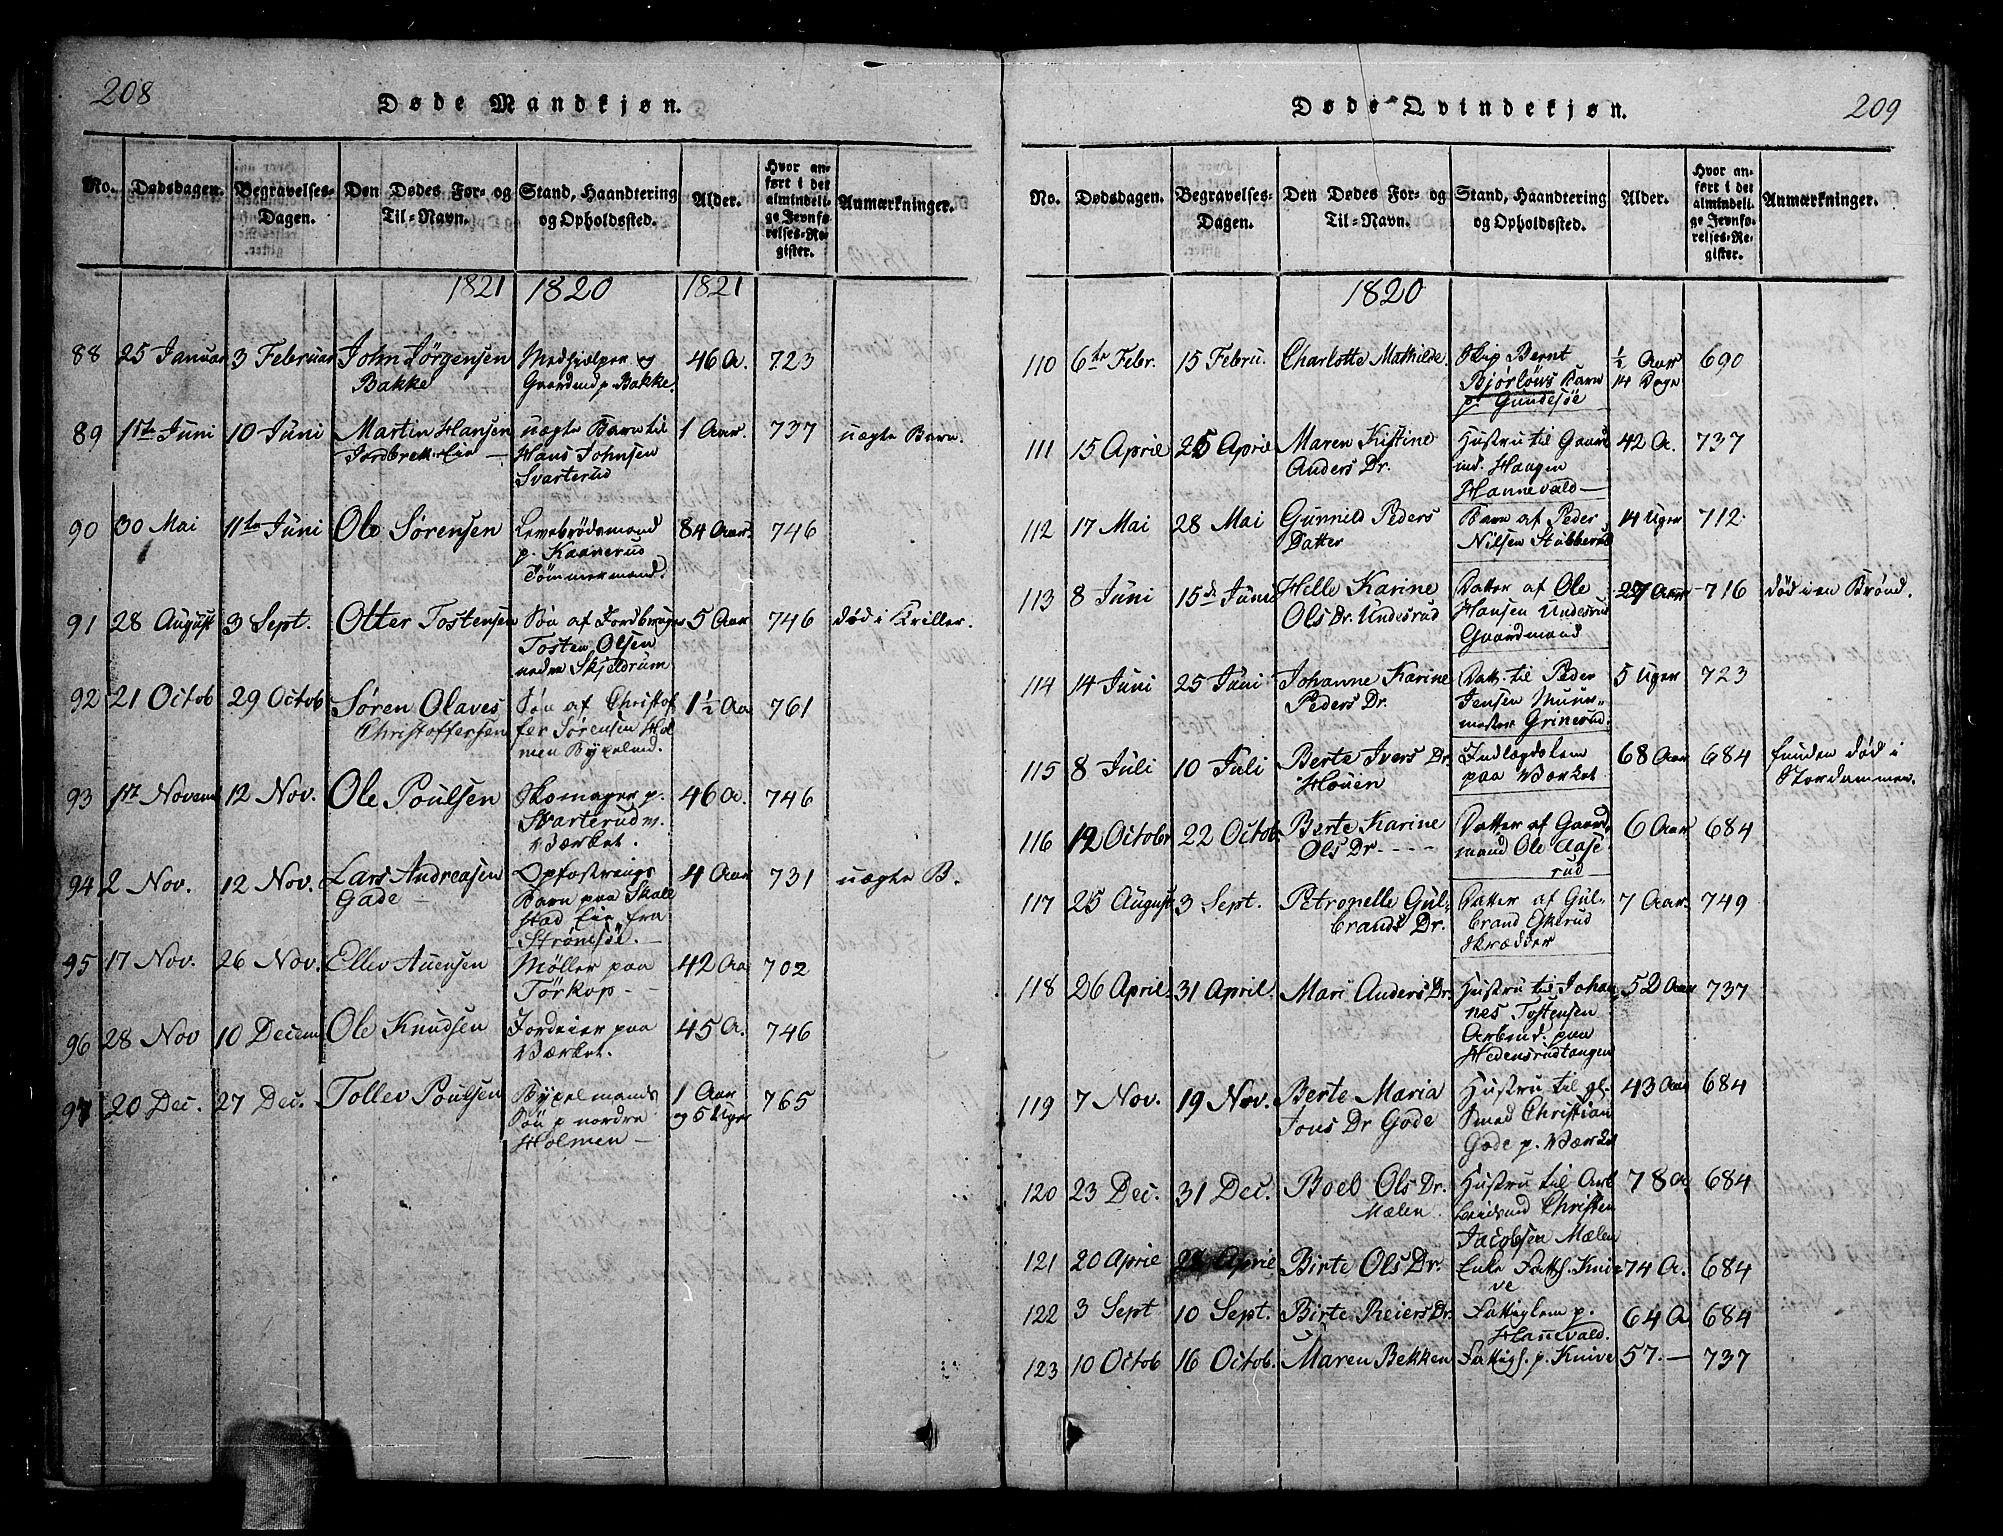 208
Døde Mandkjøn.
No. Dødsdagen. Begravelses-Dagen. Den Dødes For- og Til-Navn. Stand, Haandtering og Opholdssted. Alder. Hvor anført i det almindelige Jevnførelses-Register. Anmærkninger.
1821 1820 1821
88 25 Januar 3 Februar John Jörgensen Medhjelper og 46 A. 723
Bakke Gaardmd p. Bakke.
89 1ste Juni 10 Juni Martin Hansen uægte Barn til 1 Aar. 737 uægte Barn.
Hans Johnsen
Svarterud
90 30 Mai 11te Juni Ole Sørensen Levebrødsmand 84 Aar. 746
p. Kaanerud
Tömmermand.
91 28 August 3 Sept. Otter Tostensen Søn af Jordbruger 5 Aar 746 død i Kriller.
Tosten Olsen
nedre Skjeldrum
92 21 Octob 29 Octob Søren Olaves Søn af Christof 1½ Aa 761
Christoffersen fer Sørensen Hol
men Byxelmd.
93 1st Novem 12 Nov. Ole Poulsen Skomager p. 46 A. 746
Svarterud v.
Værket.
94 2 Nov. 12 Nov. Lars Andreasen Opfostrings 4 Aar 731 uægte B.
Gade — Barn paa Skale
stad Eie fra
Strömsöe. —
95 17 Nov. 26 Nov. Ellev Auensen Møller paa 42 Aa 702
Törkop - -
96 28 Nov 10 Decem Ole Knudsen Jordeier paa 45 A. 746
Værket.
97 20 Dec. 27 Dec. Tollev Poulsen Byxelmands 1 Aar 765
Søn p nordre og 5 Uger
Holmen —
209
Døde Qvindekjøn.
No. Dødsdagen. Begravelses-Dagen. Den Dødes For- og Til-Navn. Stand, Haandtering og Opholdssted. Alder. Hvor anført i det almindelige Jevnførelses-Register. Anmærkninger.
1820
110 6te Febr. 15 Febru. Charlotte Mathilde Skip Bernt ½ Aar 690
Bjørløvs Barn 14 Dage
p. Gundesöe
111 15 April 25 April Maren Kistine Hustru til Gaard 42 A. 737
Anders Dr. md. Haagen
Hannevald —
112 17 Mai 28 Mai Gunnild Peders Barn af Peder 14 Uger 712
Datter Nilsen Stubberud
113 8 Juni 15de Juni Helle Karine Datter af Ole 27 Aar 716 død i en Brønd.
Ols Dr. Undesrud Hansen Undesrud
Gaardmand
114 14 Juni 25 Juni Johanne Karine Datt. til Peder 5 Uger 723
Peders Dr. Jensen Muur-
mester Grinerud.
115 8 Juli 10 Juli Berte Ivers Dr. Indlægdslem 68 Aar 684 funden død i
Houen paa Værket. Stordammen.
116 12 Octobr 22 Octob. Berte Karine Datter af Gaard 6 Aar 684
Ols Dr. - - - - mand Ole Aase
rud
117 25 August 3 Sept. Petronelle Gul- Datter af Gul- 7 Aar. 749
brands Dr. brand Eskerud
Skrædder
118 26 April. 31 April. Mari Anders Dr. Hustru til Johan 52 Aar 737
nes Tostensen
Arbmd. paa
Hedensrudtangen
119 7 Nov. 19 Nov. Berte Maria Hustru til gl. 43 Aar 684
Jons Dr Gode Smed Christian
Gode p. Værket
120 23 Dec. 31 Dec. Boel Ols Dr. Hustru til Arb 78 A. 684
Mælen. Christen
Jacobsen Mælen
121 20 April 28 April Birte Ols Dr. Enke Fattl. Kni 74 A. 684
ve
122 3 Sept 10 Sept. Birte Reiers Dr. Fattiglem p. 64 A 684
Hannevald.
123 10 Octob 16 Octob. Maren Bekken Fattigl. p. Knive 57. — 737